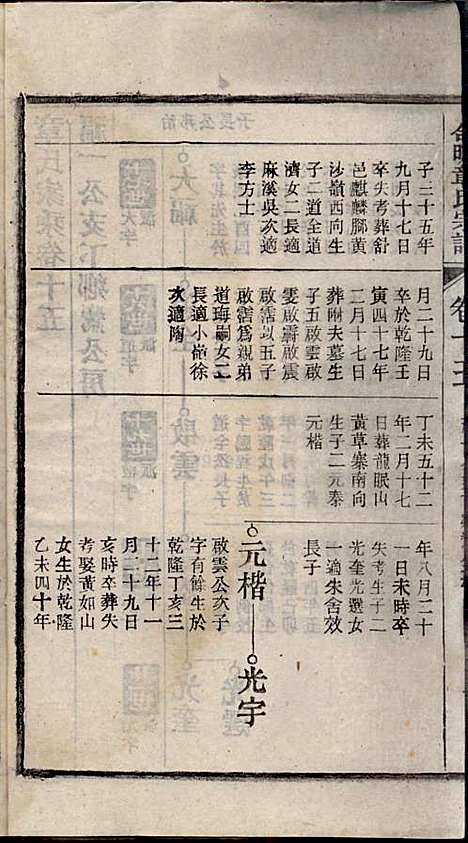 子三十五年
九月十七日
卒失考葬舒
邑麒麟腳黃
沙嶺西向生
子二道全道
濟女二長適
麻溪吳次適
李方士
月二十九日
卒於乾隆壬
寅四十七年
二月十七日
葬祔夫墓生
子五啟雲啟
雯啟霨啟震
啟霑以五子
啟霑爲親弟
道珻嗣女二
長適小嶺徐
次適陶
丁未五十二
年二月十七
日葬龍眠山
黃草寨南向
生子二元泰
元楷
年八月二十
一日未時卒
失考生子二
光奎光選女
一適朱舍效
長子
元楷
啟雲公次子
字有餘生於
乾隆丁亥三
十二年十一
月二十九日
亥時葬失
考娶黃如山
女生於乾隆
乙未四十年
光宇